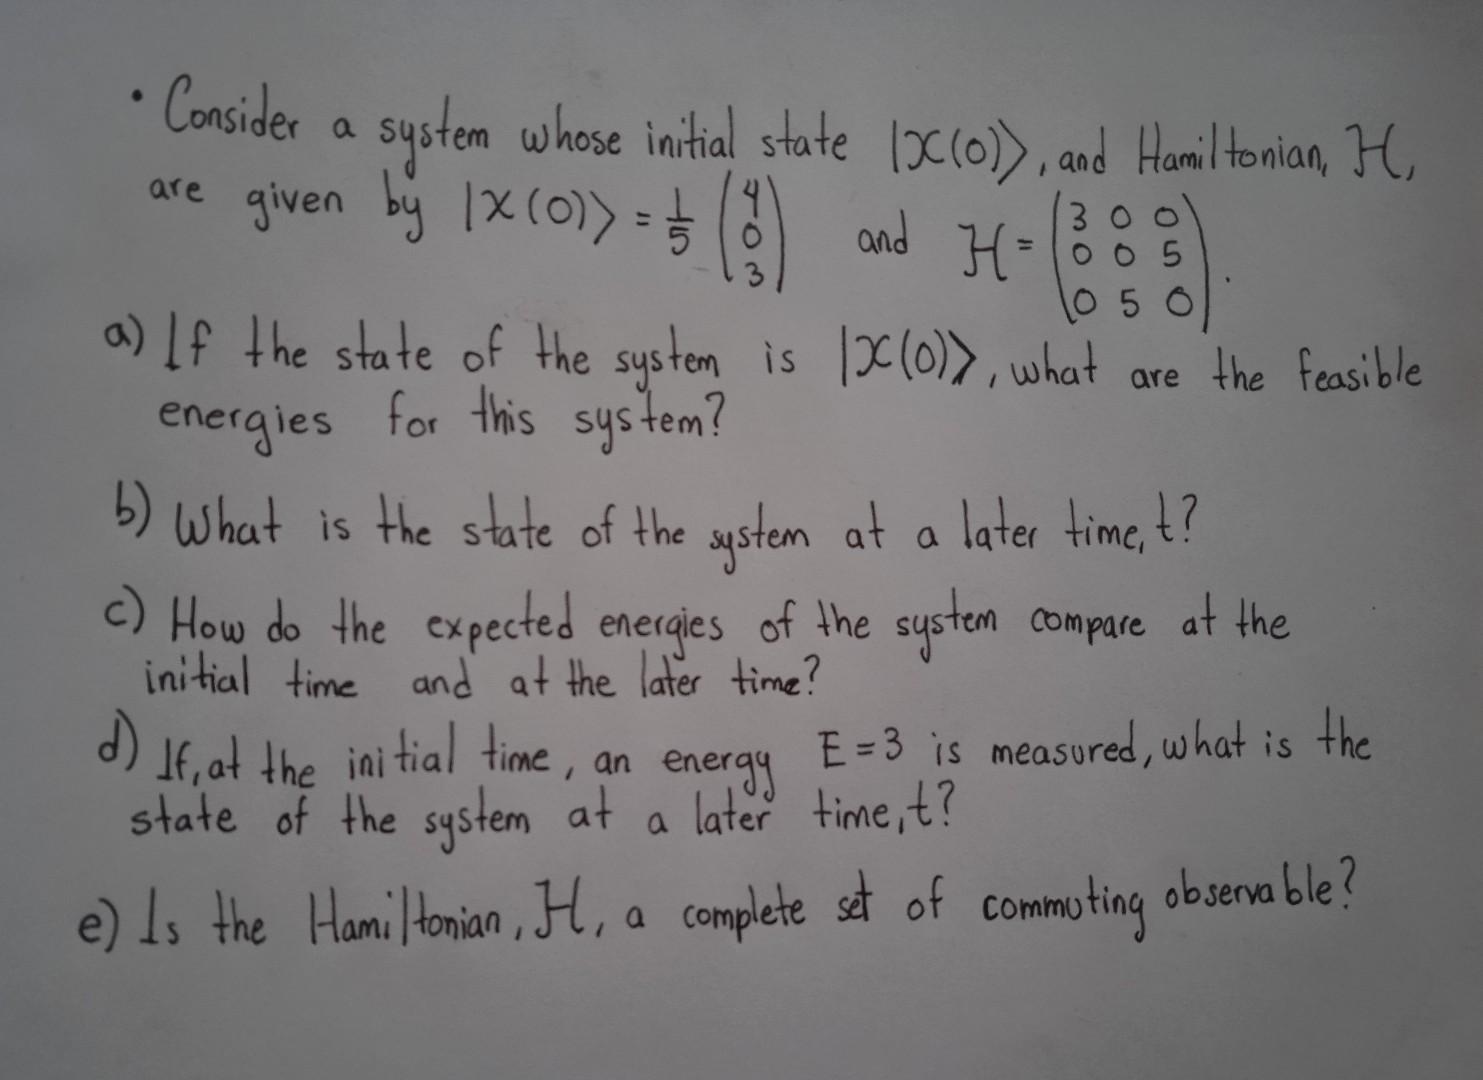 • Consider a system whose initial state |X(0)⟩, and Hamiltonian, H,
are given by |X(0)⟩ = 1/5 (4 0 3) and H = (3 0 0; 0 0 5; 0 5 0).
a) If the state of the system is |X(0)⟩, what are the feasible
energies for this system?
b) What is the state of the system at a later time, t?
c) How do the expected energies of the system compare at the
initial time and at the later time?
d) If, at the initial time, an energy E = 3 is measured, what is the
state of the system at a later time, t?
e) Is the Hamiltonian, H, a complete set of commuting observable?